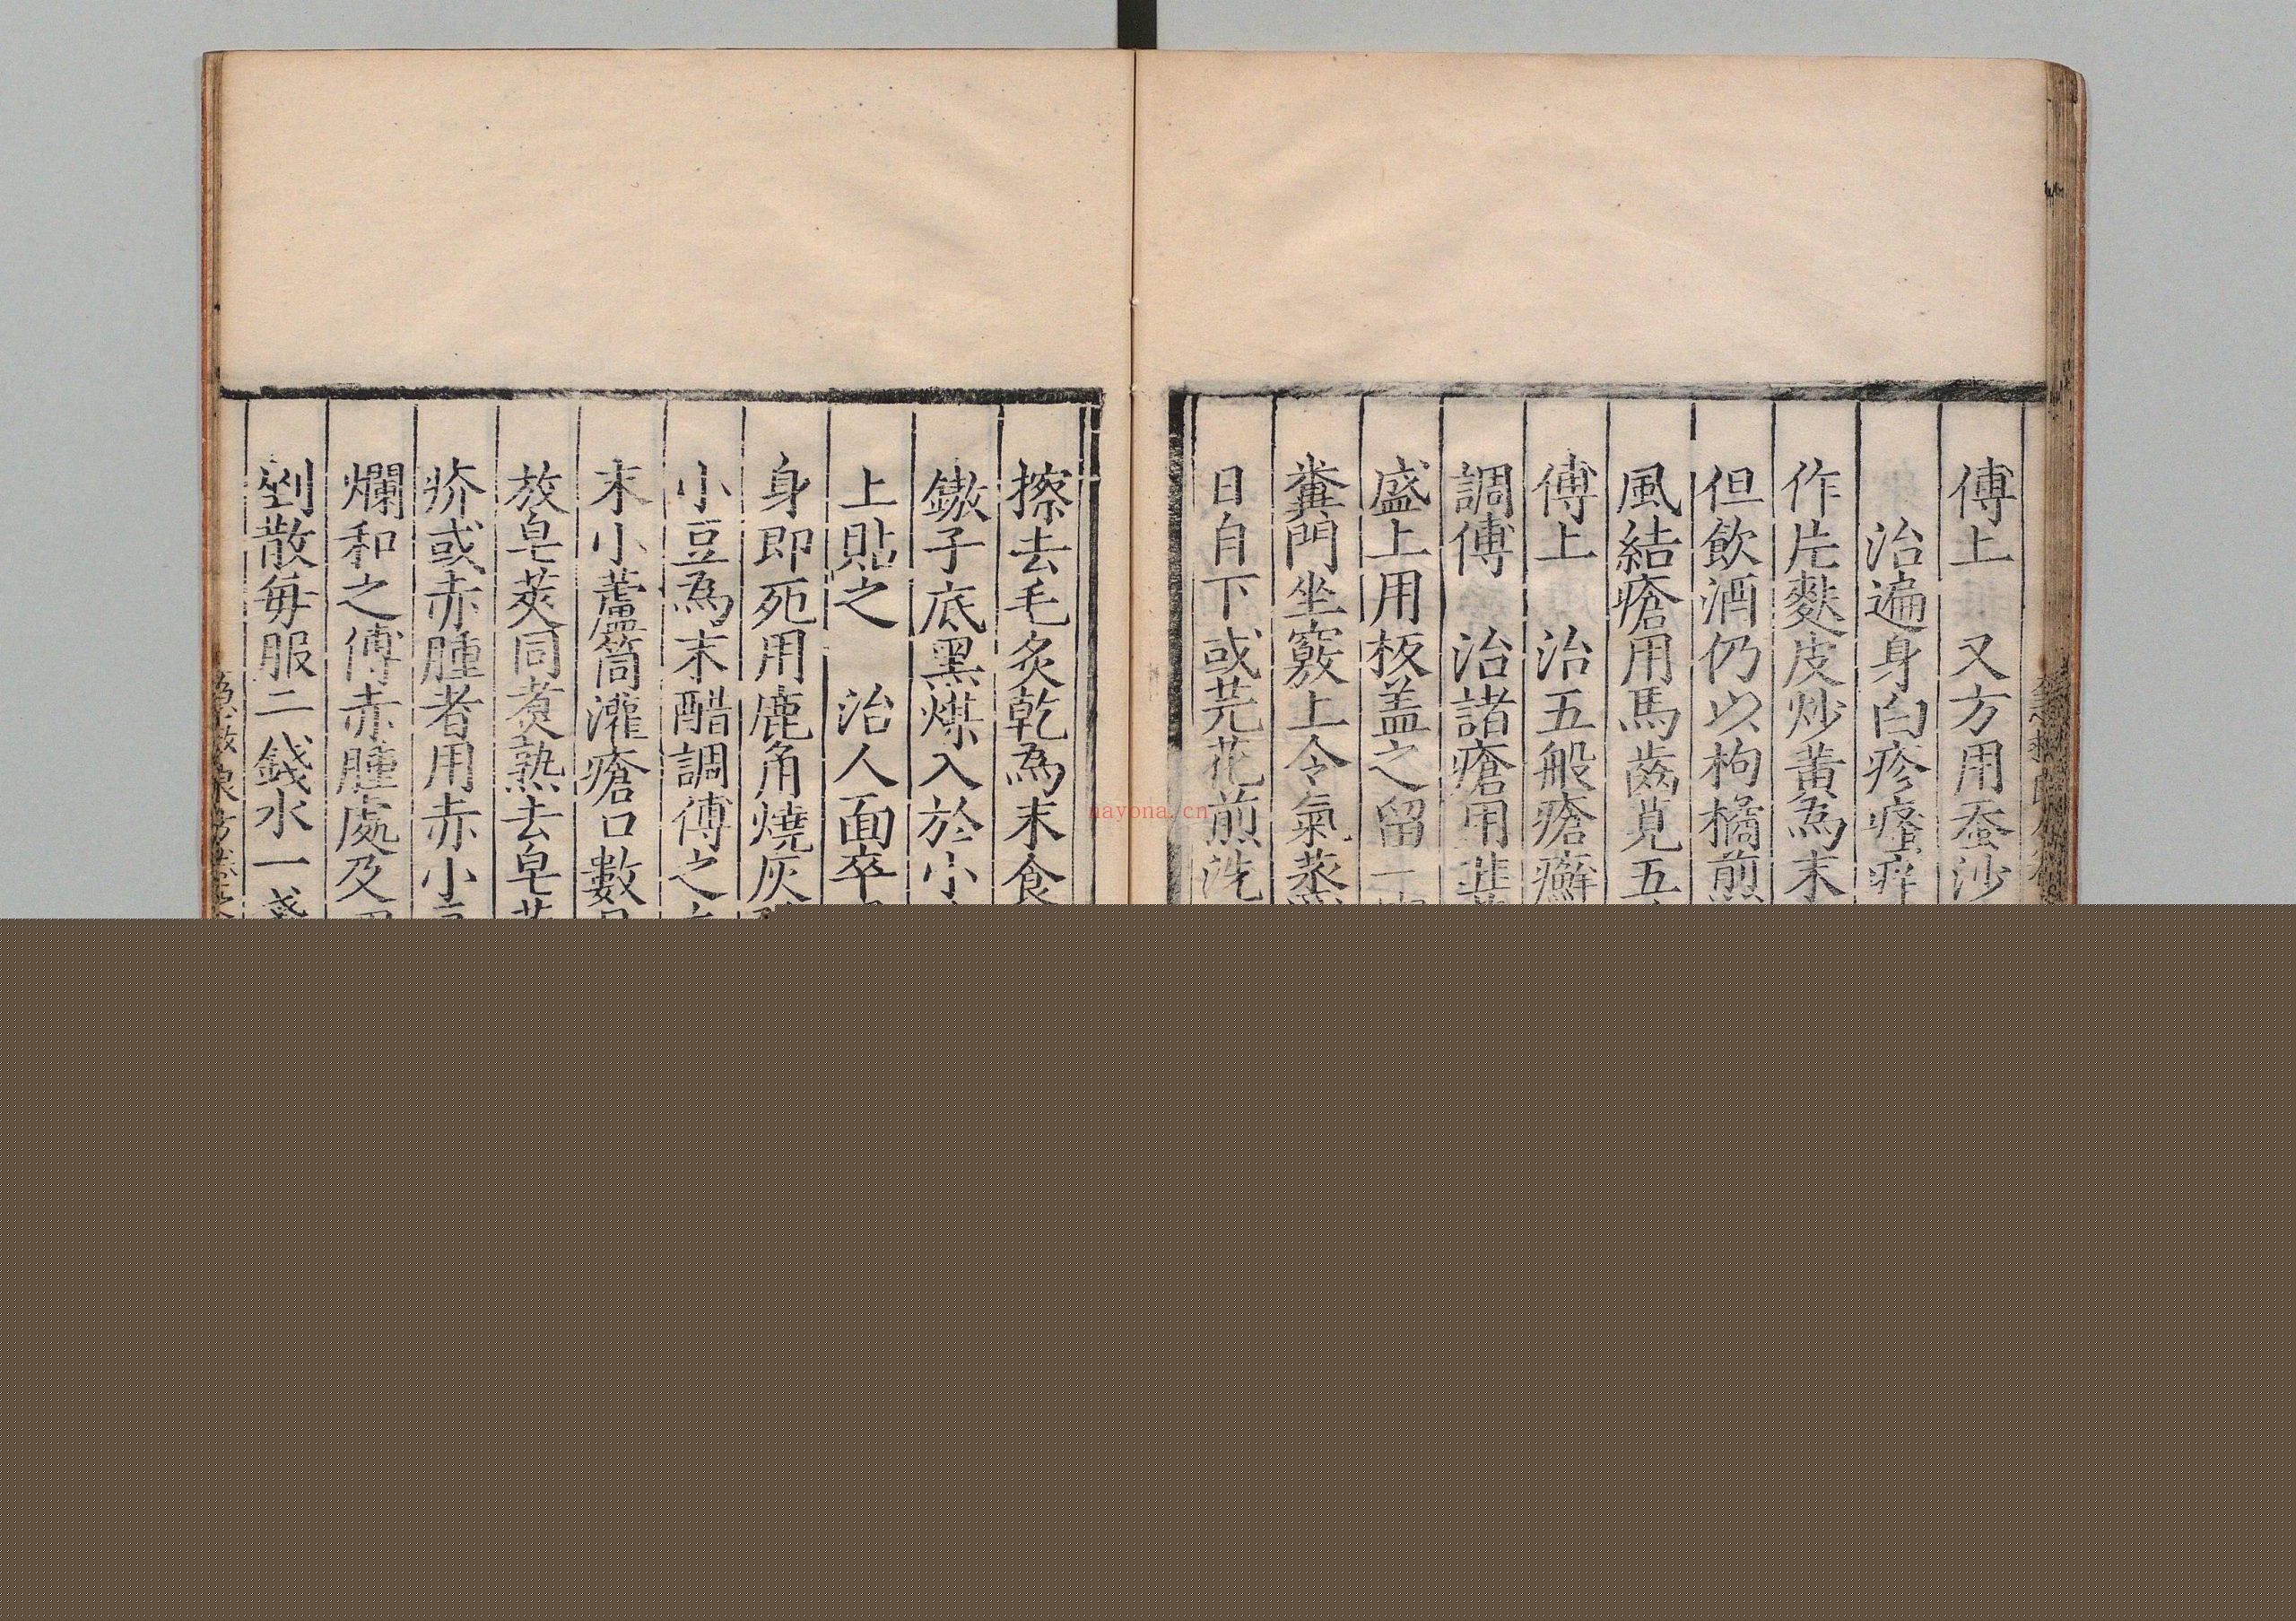 傅上　又方用蚕沙
治遍身白疹瘙痒
作片麩皮炒黃為末
但飲酒仍以枸橘煎
風結瘡用馬齒莧五
傅上　治五般瘡癬
調傅　治諸瘡用韮
盛上用板盖之留一
糞門坐竅上令氣蒸
日自下或芫花煎洗
擦去毛炙乾為末食
鏾子底黑煤入於小
上貼之　治人面卒
身即死用鹿角燒灰
小豆為末醋調傅之
末小蘆筒灌瘡口數
放皂莢同煮熟去皂
疥或赤腫者用赤小
爛和之傅赤腫處及
剉散每服二錢水一盞
nayona.cn